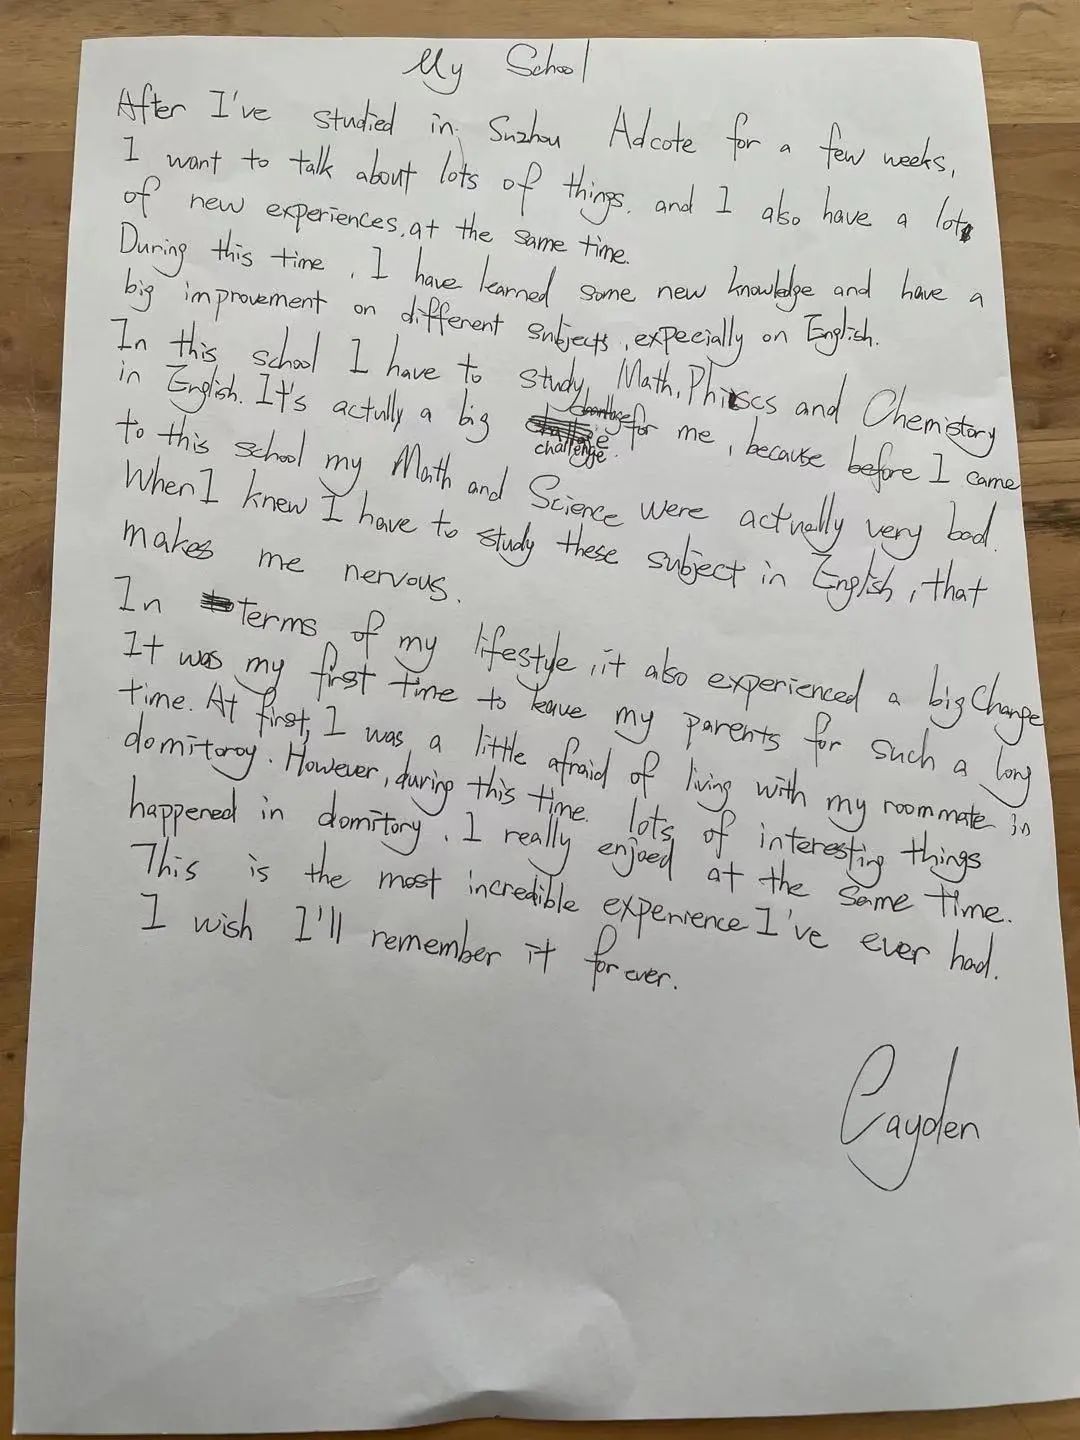 My School
After I've studied in Suzhou Adcote for a few weeks,
I want to talk about lots of things. and I also have a lot
of new experiences. at the same time.
During this time, I have learned some new knowledge and have a
big improvement on different subjects, expecially on English.
In this school I have to study Math, Phiscs and Chemistory
in English. It's actully a big challenge. for me, because before I came
to this school my Math and Science were actually very bad.
When I knew I have to study these subject in English, that
makes me nervous.
In terms of my lifestyle, it also experienced a big Change
It was my first time to leave my parents for such a long
time. At first, I was a little afraid of living with my roommate in
domitoroy. However, during this time. lots of interesting things
happened in domitory. I really enjoed at the same time.
This is the most incredible experience I've ever had.
I wish I'll remember it for ever.
Cayden